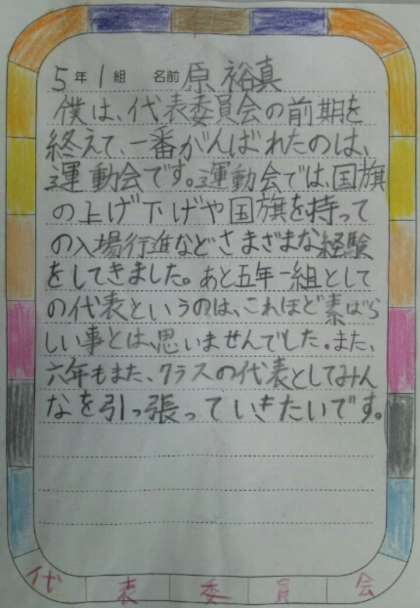 5年1組 名前 原 裕真
僕は、代表委員会の前期を
終えて、一番がんばれたのは、
運動会です。運動会では、国旗
の上げ下げや国旗を持って
の入場行進などさまざまな経験
をしてきました。あと五年一組として
の代表というのは、これほど素ばら
しい事とは、思いませんでした。また、
六年もまた、クラスの代表としてみん
なを引っ張っていきたいです。
代表委員会